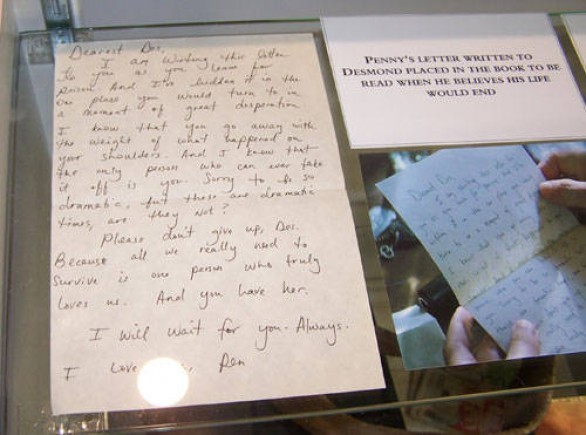 Dearest Des,
I am writing this letter
to you as you leave for
prison. And I've hidden it in the
one place you would turn to in
a moment of great desperation
I know that you go away with
the weight of what happened on
your shoulders. And I know that
the only person who can ever take
it off is you. Sorry to be so
dramatic, but these are dramatic
times, are they not?
Please don't give up, Des.
Because all we really need to
survive is one person who truly
loves us. And you have her.
I will wait for you. Always.
I love , Pen
PENNY'S LETTER WRITTEN TO
DESMOND PLACED IN THE BOOK TO BE
READ WHEN HE BELIEVES HIS LIFE
WOULD END